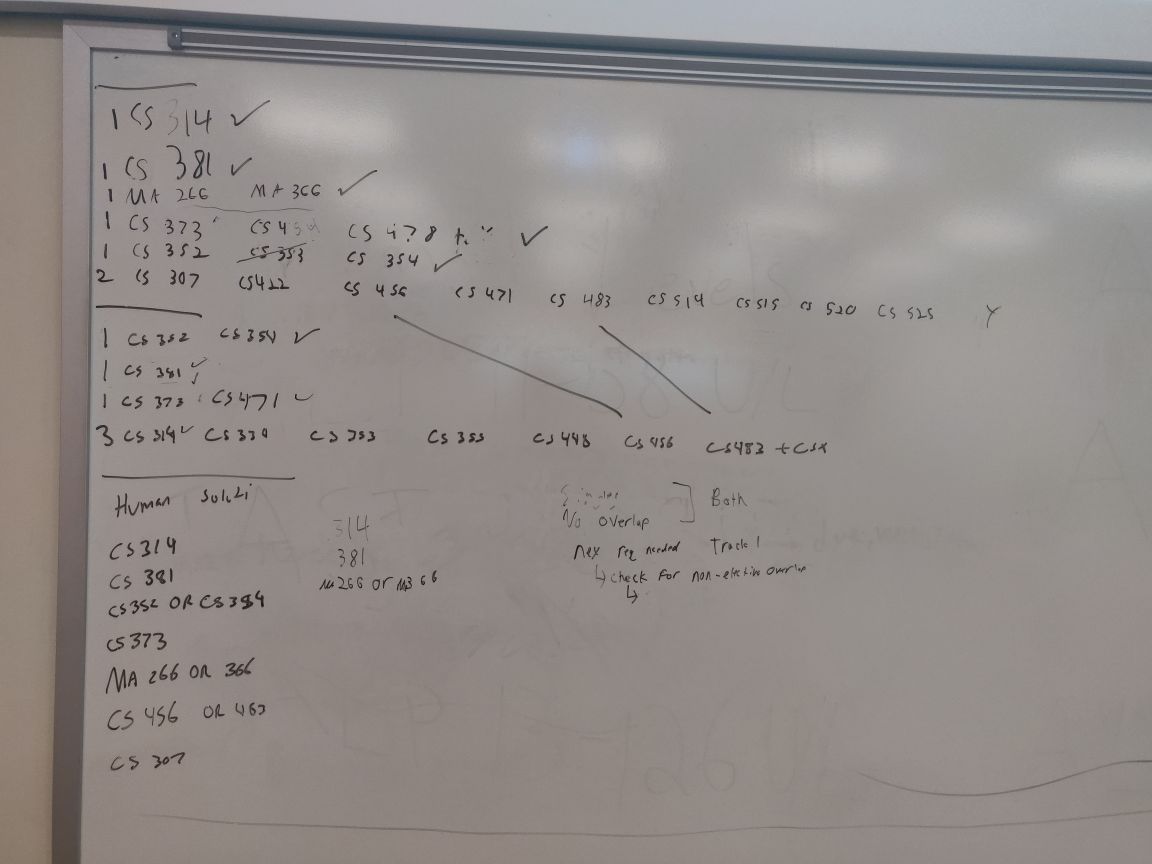 1 CS 314 ✓
1 CS 381 ✓
1 MA 266 MA 366 ✓
1 CS 373 CS 478 ✓
1 CS 352 CS 353 CS 354 ✓
2 CS 307 CS422 CS 456 CS 471 CS 483 CS 514 CS 515 CS 520 CS 525 Y
1 CS 352 CS 354 ✓
1 CS 381 ✓
1 CS 373 CS 471 ✓
3 CS 314 ✓ CS 334 CS 353 CS 355 CS 448 CS 456 CS 483 + CSX
Human Soluti
CS 314
CS 381
CS 352 OR CS 354
CS 373
MA 266 OR 366
CS 456 OR 483
CS 307
314
381
MA 266 or M366
Both
No overlap
req needed Track 1
↳ check for non-elective overlap
↳